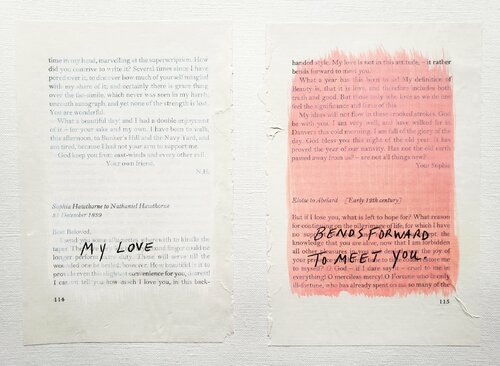 time in my hand, marvelling at the superscription. How
did you contrive to write it? Several times since I have
pored over it, to discover how much of yourself mingled
with my share of it; and certainly there is grace flung
over the fac-simile, which never was seen in my harsh,
uncouth autograph, and yet none of the strength is lost.
You are wonderful.
What a beautiful day! and I had a double enjoyment
of it—for your sake and my own. I have been to walk,
this afternoon, to Bunker's Hill and the Navy Yard, and
am tired, because I had not your arm to support me.
God keep you from east-winds and every other evil.
Your own friend,
N.H.
Sophia Hawthorne to Nathaniel Hawthorne
31 December 1839
Best Beloved,
I send you some
with to kindle the
taper.
MY LOVE
convenience for you, dearest! I
cannot tell you how much I love you, in this back-
114
handed style. My love is not in this attitude,—it rather
bends forward to meet you.
What a year has this been to us! My definition of
Beauty is, that it is love, and therefore includes both
truth and good. But those only who love as we do can
feel the significance and force of this.
My ideas will not flow in these crooked strokes. God
be with you. I am very well, and have walked far in
Danvers this cold morning. I am full of the glory of the
day. God bless you this night of the old year. It has
proved the year of our nativity. Has not the old earth
passed away from us?—are not all things new?
Your Sophie
Eloise to Abelard [Early 12th century]
But if I lose you, what is left to hope for? What reason
for continuing on the pilgrimage of life, for which I have
no support
BENDS FORWARD
knowledge that you are alive, now that I am forbidden
all other pleasures in you
TO MEET YOU.
to myself? O God—if I dare say it—cruel to me in
everything! O merciless mercy! O Fortune who is only
ill-fortune, who has already spent on me so many of the
115